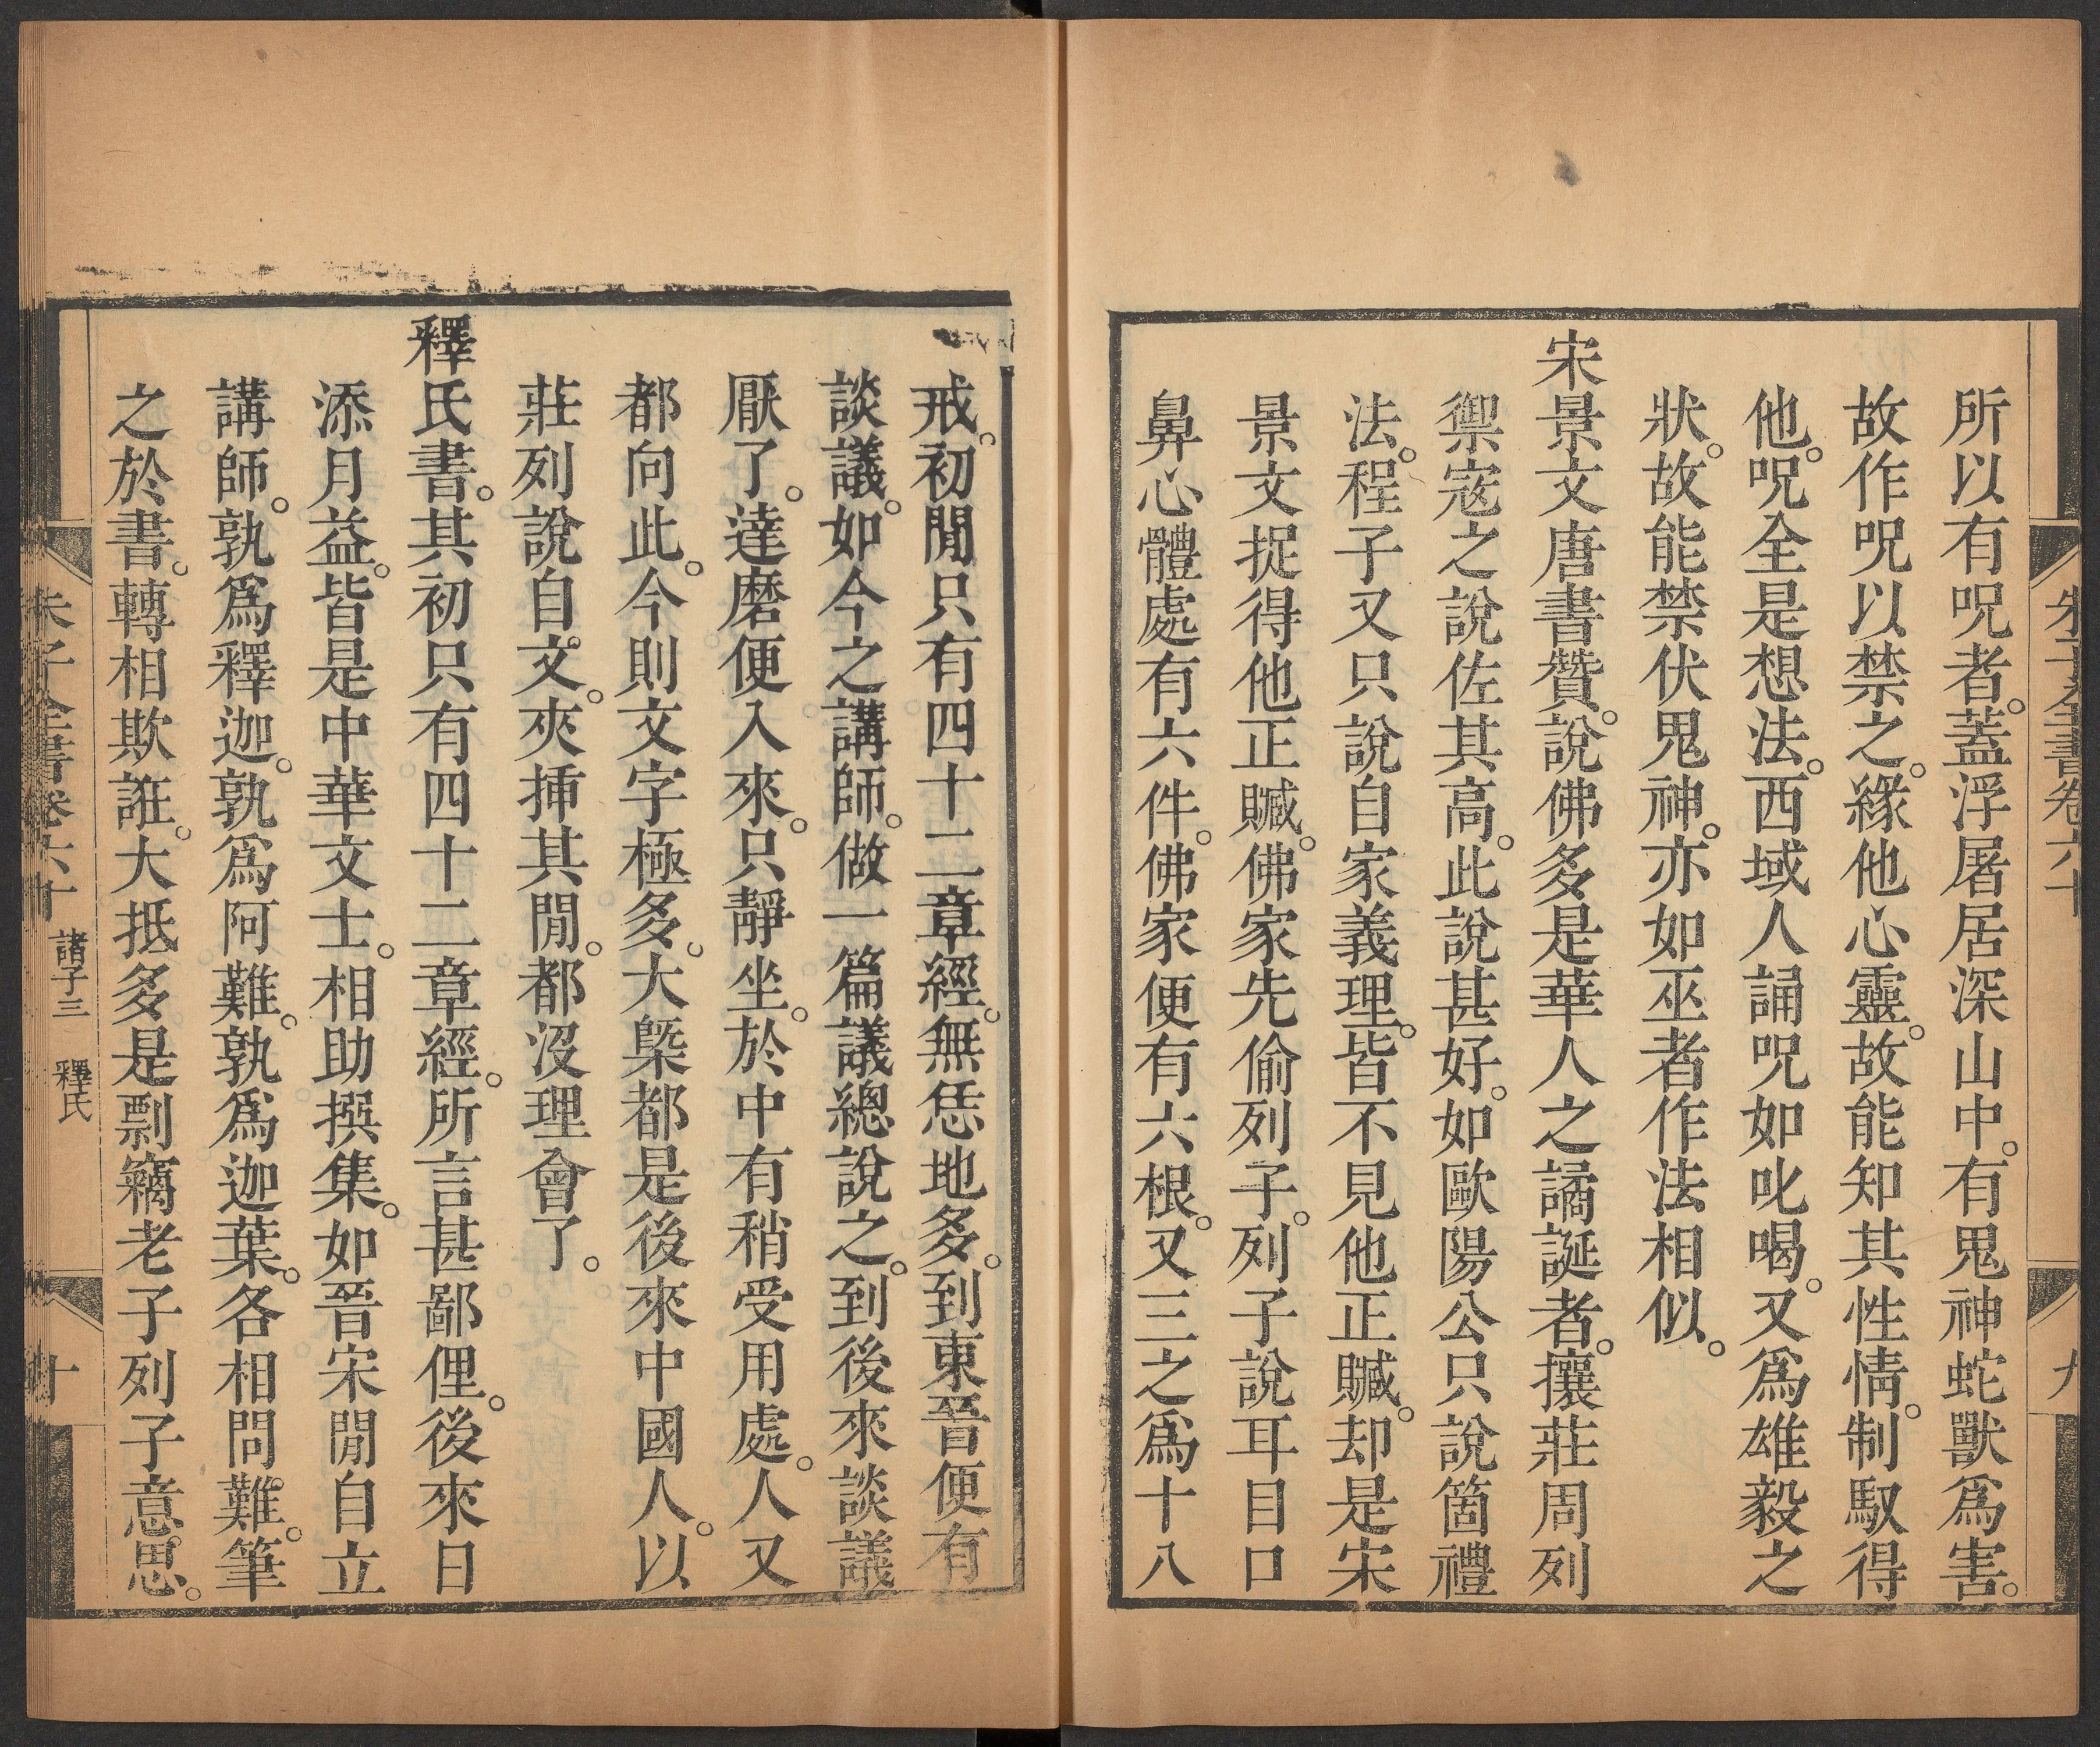 所以有呪者。蓋浮屠居深山中。有鬼神蛇獸爲害。
故作呪以禁之。緣他心靈。故能知其性情。制馭得
他。呪全是想法。西域人誦呪如叱喝。又爲雄毅之
狀。故能禁伏鬼神。亦如巫者作法相似。
宋景文唐書贊。說佛多是華人之譎誕者。攘莊周列
禦寇之說佐其高。此說甚好。如歐陽公只說箇禮
法。程子又只說自家義理。皆不見他正贓。却是宋
景文捉得他正贓。佛家先偷列子。列子說耳目口
鼻心體處有六件。佛家便有六根。又三之爲十八
朱子全書卷六十
九
戒。初閒只有四十二章經。無恁地多。到東晉便有
談議。如今之講師。做一篇議總說之。到後來談議
厭了。達磨便入來。只靜坐。於中有稍受用處。人又
都向此。今則文字極多。大槩都是後來中國人。以
莊列說自文。夾揷其閒。都沒理會了。
釋氏書。其初只有四十二章經。所言甚鄙俚。後來日
添月益。皆是中華文士。相助撰集。如晉宋閒自立
講師。孰爲釋迦。孰爲阿難。孰爲迦葉。各相問難。筆
之於書。轉相欺誑。大抵多是剽竊老子列子意思。
朱子全書卷六十 諸子三 釋氏
十